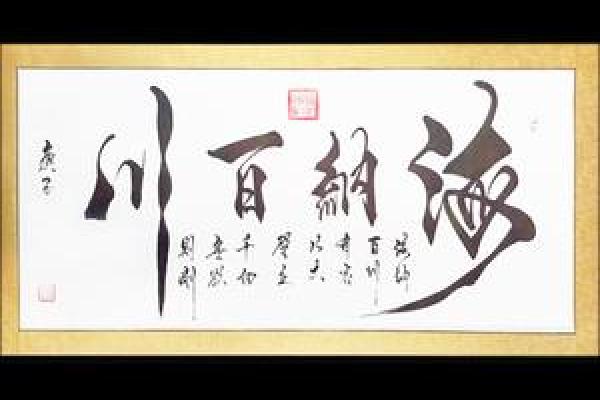 海納百川
海納
百川
有容
乃大
壁立
千仞
無欲
則剛
庚子